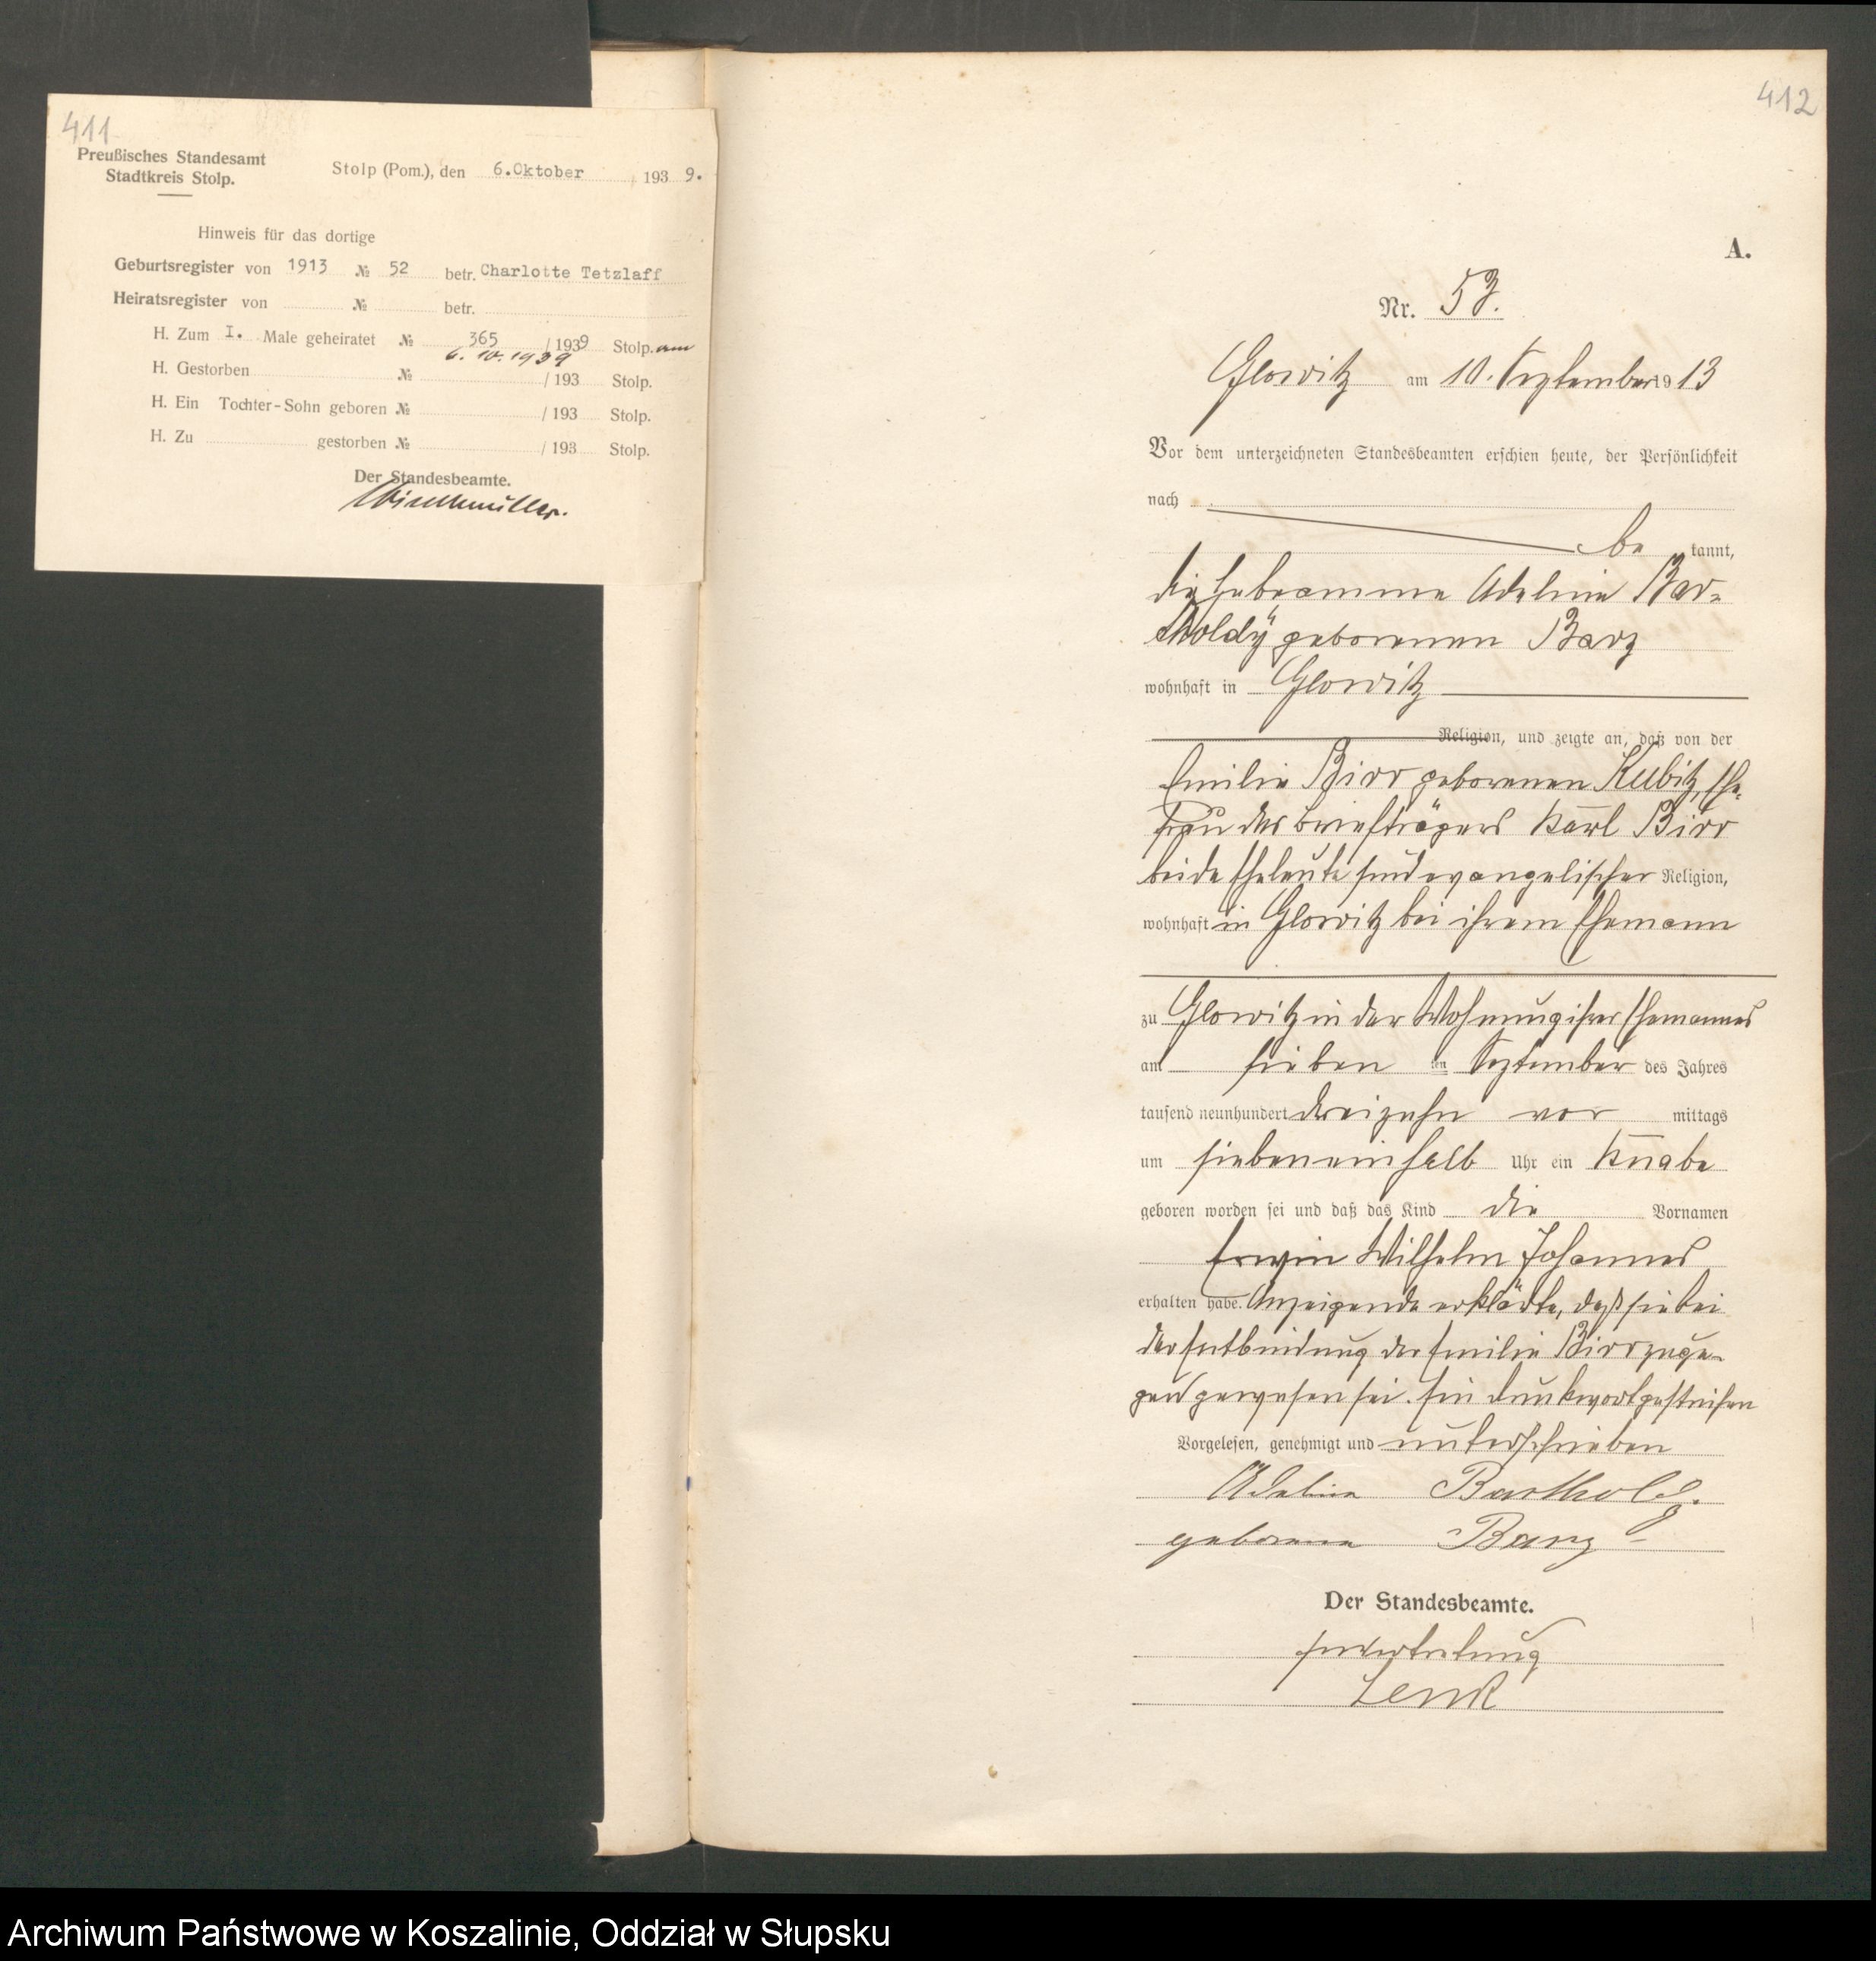 411
Preußisches Standesamt
Stadtkreis Stolp.
Stolp (Pom.), den 6.Oktober 1939.
Hinweis für das dortige
Geburtsregister von 1913 № 52 betr. Charlotte Tetzlaff
Heiratsregister von № betr.
H. Zum I. Male geheiratet № 365 / 1939 Stolp. am
6. 10. 1939
H. Gestorben № / 193 Stolp.
H. Ein Tochter-Sohn geboren № / 193 Stolp.
H. Zu gestorben № / 193 Stolp.
Der Standesbeamte.
412
A.
Nr. 53.
Glowitz am 10. September 1913
Vor dem unterzeichneten Standesbeamten erschien heute, der Persönlichkeit
nach
be kannt,
die Hebeamme Adeline Bar-
tholdÿ geborenen Barz
wohnhaft in Glowitz
Religion, und zeigte an, daß von der
Emilie Birr geborenen Kubitz, Ehe-
frau des Briefträgers Karl Birr
beide Eheleute sind evangelischer Religion,
wohnhaft in Glowitz bei ihrem Ehemann
zu Glowitz in der Wohnung ihres Ehemannes
am sieben ten September des Jahres
tausend neunhundert dreizehn vor mittags
um siebeneinhalb Uhr ein Knabe
geboren worden sei und daß das Kind die Vornamen
Erwin Wilhelm Johannes
erhalten habe. Anzeigende erklärte, daß sie bei
der Entbindung der Emilie Birr zuge-
gen gewesen sei. Ein Druckwort gestrichen
Vorgelesen, genehmigt und unterschrieben
Adeline Bartholdy.
geborene Barz
Der Standesbeamte.
In Vertretung
Lenk
Archiwum Państwowe w Koszalinie, Oddział w Słupsku